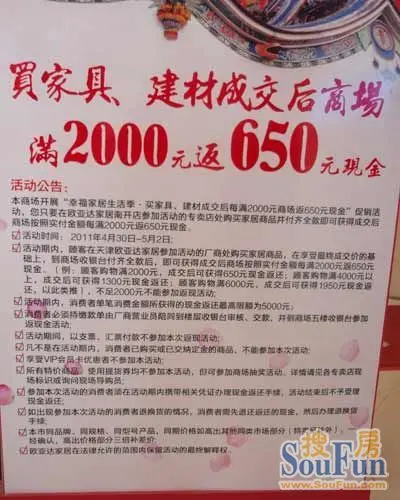 買家具、建材成交后商場
滿2000元返650元現金
活动公告:
本商场开展“幸福家居生活季·买家具、建材成交后每满2000元商场返650元现金”促销活
动，您只要在欧亚达家居南开店参加活动的专卖店处购买家居商品并付齐全款即可获得成交后
商场按照实付金额每满2000元返650元现金。
活动时间：2011年4月30日—5月2日;
活动期内，顾客在天津欧亚达家居参加活动的厂商处购买家居商品，在享受最终成交价的基
础上，到商场收银台付齐全款后，即可获得成交后商场按照实付金额每满2000元返650元
现金。（例：顾客购物满2000元，成交后可获得650元现金返还；顾客购物满4000元以
上，成交后可获得1300元现金返还；顾客购物满6000元以上，成交后可获得1950元现金返
还，以此类推），不足2000元不能参加返现活动；
活动期内，消费者单笔消费金额所获得的现金返还最高限额为5000元；
消费者必须持缴款单由厂商营业员陪同到楼层收银台审核、交款，并到商场五楼收银台参加
返现金活动；
活动期间，以支票、汇票付款不参加本次返现活动；
凡不是在活动期内，消费者已购买或已交纳定金的商品，不能参加本次活动；
享受VIP会员卡优惠者不参加本活动；
所有特价商品、使用提货券均不参加本活动，但可参加商场抽奖活动，详情请见各专卖店现
场标识或询问现场导购员；
参加本次活动的消费者须在活动期内携带相关凭证办理现金返还手续，活动结束后不予受理
现金返还；
如出现参加本次活动的消费者退换货的情况，消费者需先退还返还的现金，然后办理退换货
手续；
本市同品牌、同规格、同型号产品，同期价格如高出其他同类市场部分（特卖
一经确认，高出价格部分三倍补差价；
欧亚达家居在法律允许的范围内保留活动的最终解释权。
搜房
SouFun
SouFun.com